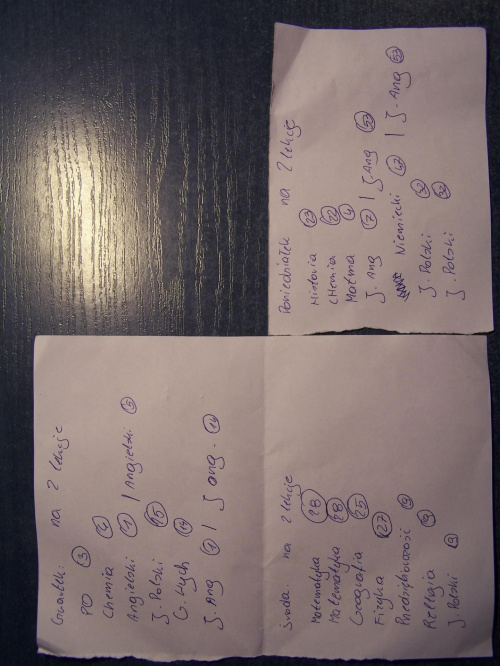 Poniedziałek na 2 lekcje
Historia 23
CHemia 22
Matma 4
J. Ang 7 | J. Ang 53
Niemiecki 42 | J. Ang 53
J. Polski 32
J. Polski 32
Czwartek: na 2 lekcje
PO 3
Chemia 2
Angielski 1 | Angielski 5
J. Polski 15
G. Wych 14
J. Ang 1 | J ang. 14
środa: na 2 lekcje
Matematyka 28
Matematyka 28
Geografia 25
Fizyka 27
Przedsiębiorczość 9
Religia 9
J Polski 9